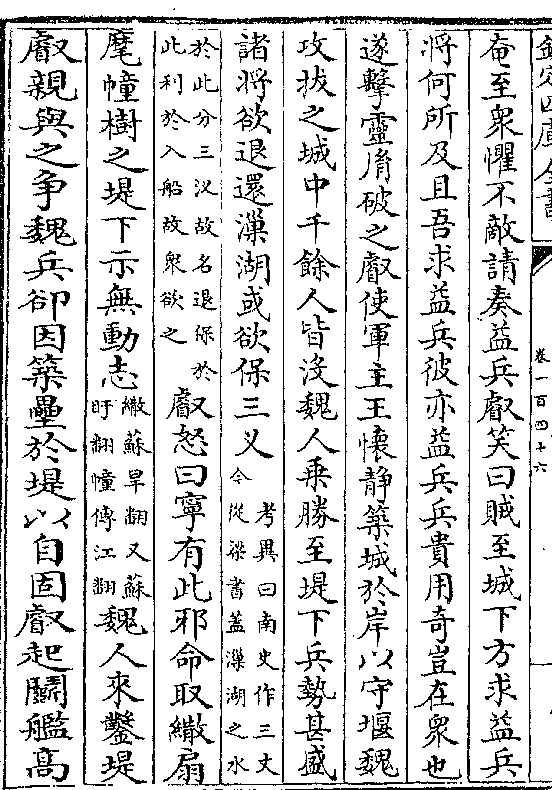 欽定四庫全書
卷一百四十六
奄至衆懼不敵請奏益兵叡笑曰賊至城下方求益兵
將何所及且吾求益兵彼亦益兵兵貴用奇豈在衆也
遂擊靈胤破之叡使軍主王懷静築城於岸以守堰魏
攻拔之城中千餘人皆没魏人乗勝至堤下兵勢甚盛
諸將欲退還漅湖或欲保三义考異曰南史作三丈今從梁書蓋漅湖之水
於此分三汊故名退保於此利於入船故衆欲之叡怒曰寧有此邪命取繖扇
麾幢樹之堤下示無動志繖蘇旱翻又蘇旰翻幢傳江翻魏人來鑿堤
叡親與之争魏兵卻因築壘於堤以自固叡起鬭艦高